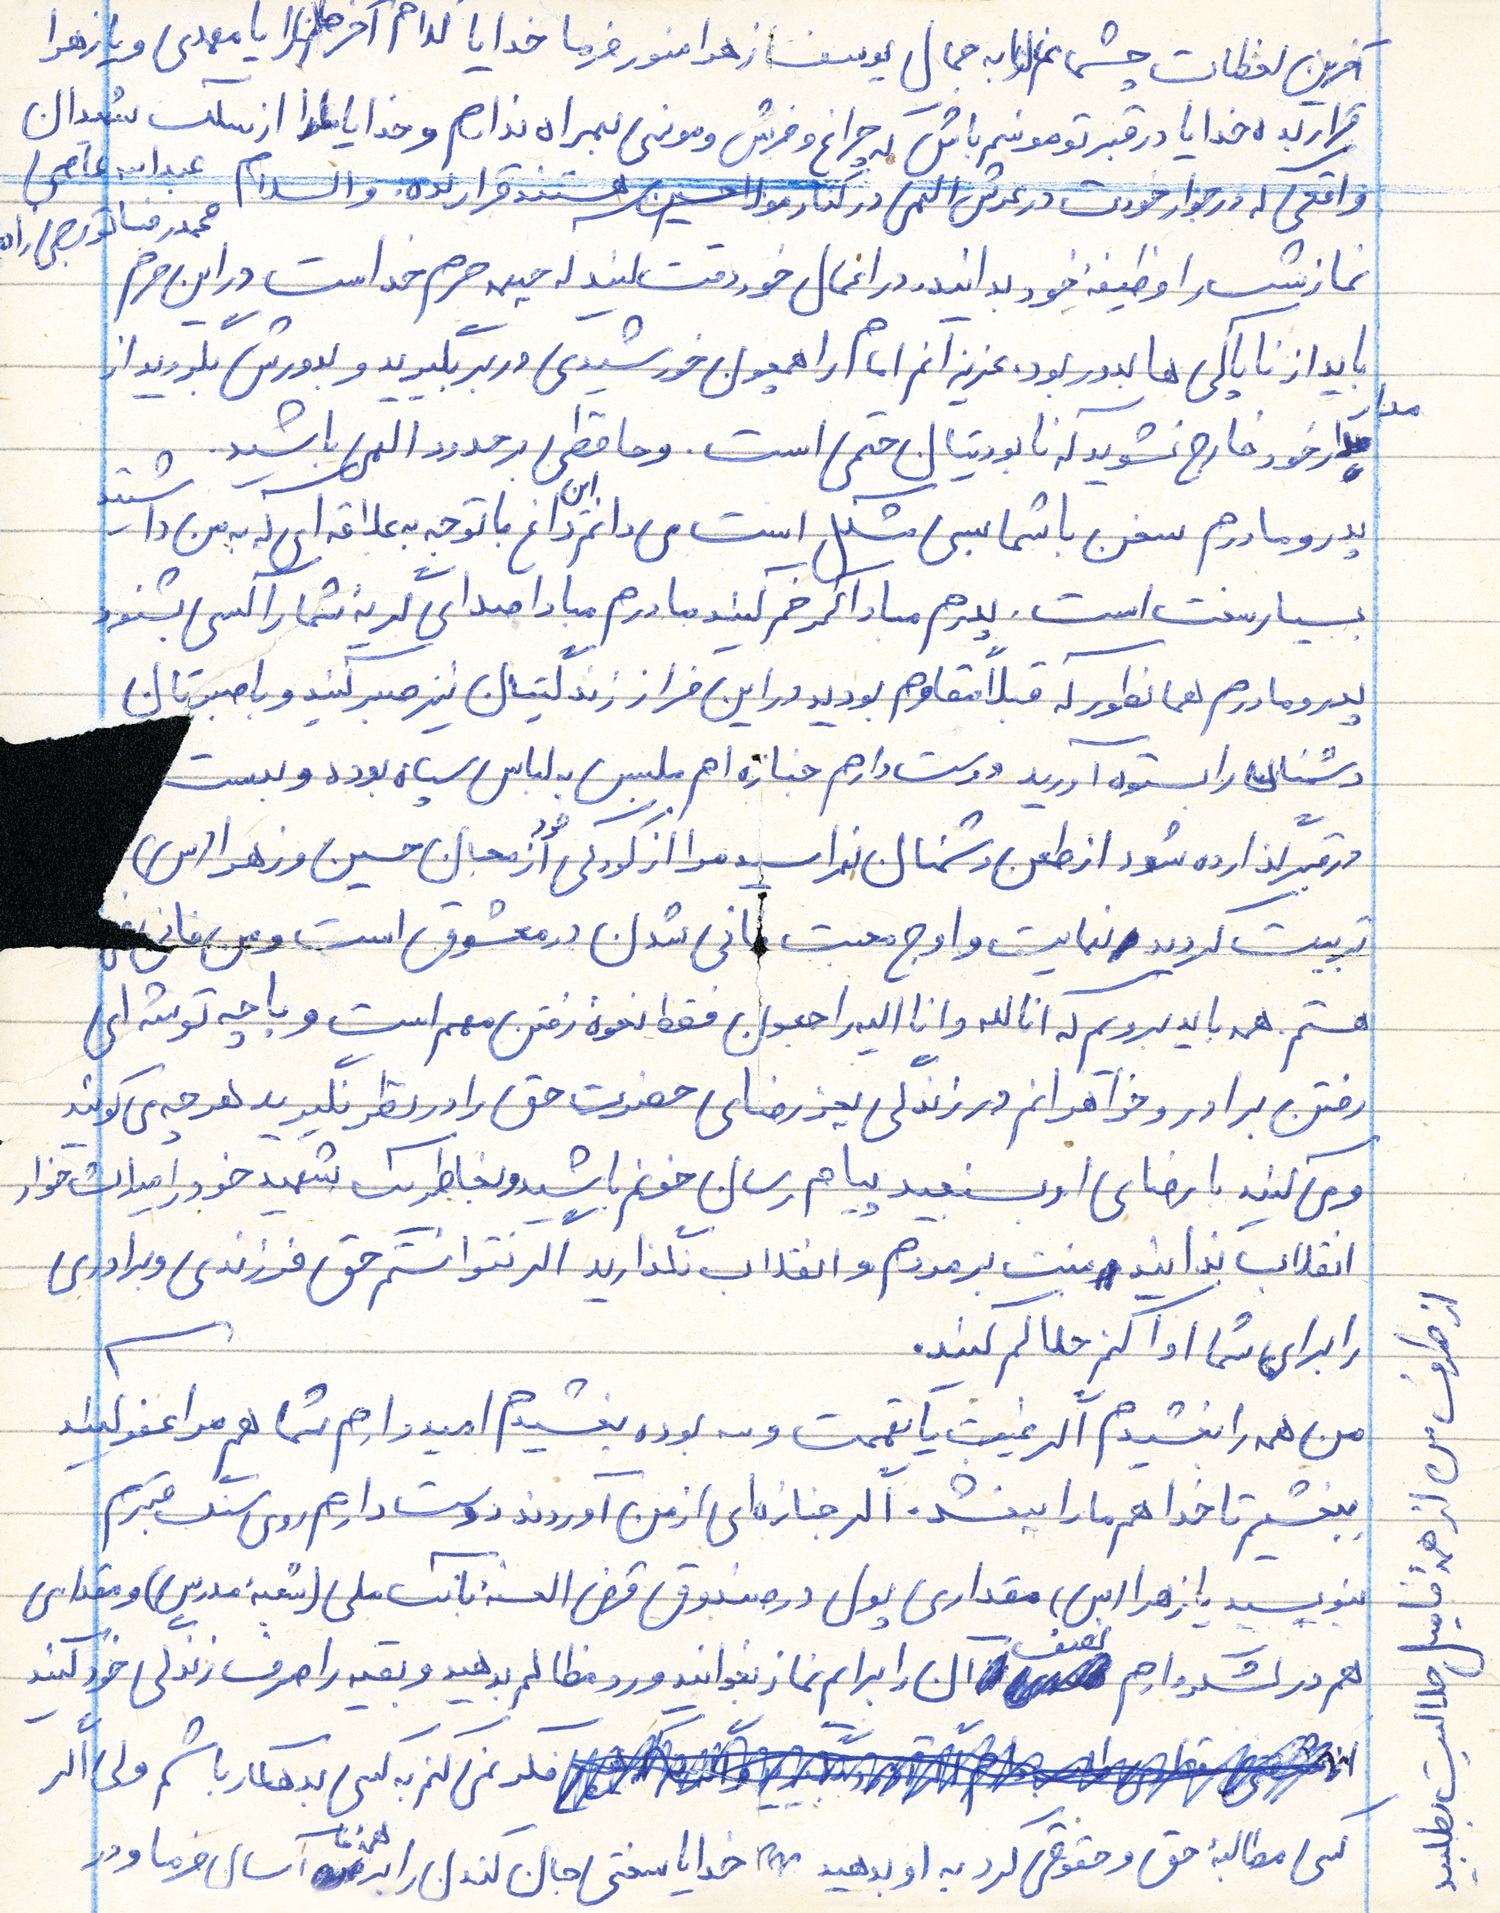 آخرین لحظات چشمانم را به جمال یوسف زهرا منور فرما خدایا کدام آخرمان را یا مهدی و یا زهرا
قرار بده خدایا در قبر تو مونسم باش که چراغ و فرش و مونسی بهمراه ندارم و خدایا ما را از سلک شهیدان
واقعی که در جوار خودت در عرش الهی در کنار مولا حسین هستند قرار بده. والسلام عبدالله عاصی
محمدرضا تورجی زاده
نماز شب را وظیفه خود بدانید. در اعمال خود دقت کنید که جهه حرم خداست در این حرم
باید از ناپاکی ها بدور بود. عزیزانم امام را همچون خورشیدی در بر بگیرید و بدورش بگردید از
مدار خود خارج نشوید که نابودیتان حتمی است. و حافظی بر حدود الهی باشید.
پدر و مادرم سخن با شما بسی مشکل است می دانم این داغ با توجه به علاقه ای که به من داشتید
بسیار سخت است. پدرم مبادا کمر خم کنید مادرم مبادا صدای گریه شما را کسی بشنود
پدر و مادرم همانطور که قبلاً مقاوم بودید در این فراز زندگیتان نیز صبر کنید و با صبرتان
دشمنان را بستوه آورید دوست دارم جنازه ام ملبس به لباس سپاه بوده و بدست
در قبر گذارده شود از طعن دشمنان نهراسید مرا از کودکی خود از محبان حسین و زهرا (س)
تربیت کردید نهایت و اوج محبت فانی شدن در معشوق است و من فانی
هستم. همه باید برویم که انا لله و انا الیه راجعون فقط نحوه رفتن مهم است و با چه توشه ای
رفتن برادر و خواهرانم در زندگی بجز رضای حضرت حق را در نظر نگیرید هر چه می گویید
و می کنید با رضای او بسنجید پیام رسان خونم باشید و بخاطر یک شهید خود را میراث خوار
انقلاب ندانید منت بر مردم و انقلاب نگذارید اگر نتوانستم حق فرزندی و برادری
را برای شما ادا کنم حلالم کنید.
من همه را بخشیدم اگر غیبت یا تهمت و ... بوده بخشیدم امیدوارم شما هم مرا عفو کنید
ببخشیم تا خدا هم ما را ببخشد. اگر جنازه ای از من آوردند دوست دارم روی سنگ قبرم
بنویسید یا زهرا (س) مقداری پول در صندوق قرض الحسنه بانک ملی (شعبه مدرس) و مقداری
هم در لشکر دارم نصف آن را برایم نماز بخوانید و رد مظالم بدهید و بقیه را صرف زندگی خود کنید
فکر نمی کنم به کسی بدهکار باشم ولی اگر
کسی مطالبه حق و حقوقی کرد به او بدهید خدایا سختی جان کندن را بر همه ما آسان فرما و در
از طرف من از همه فامیل حلالیت بطلبید